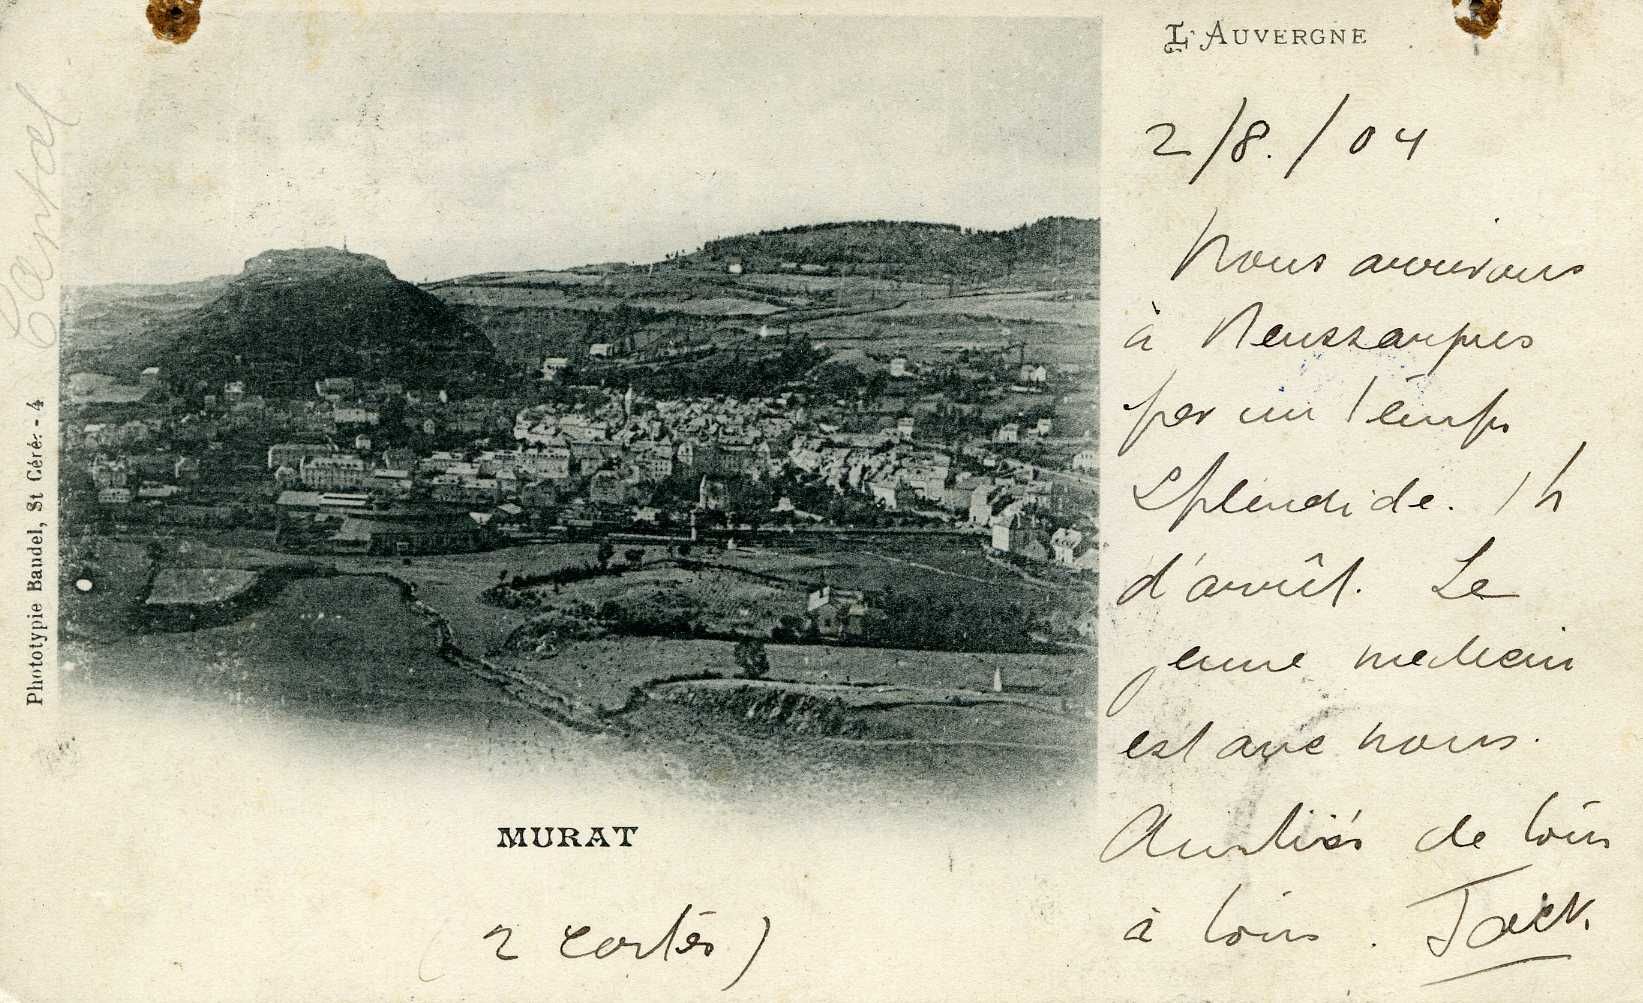 L'AUVERGNE
2/8./04
Nous arrivons
à Neussargues
par un temps
splendide. 1h
d'arrêt. Le
jeune medecin
est avec nous.
Amitiés de tous
à tous. Jack.
MURAT
(2 cartes)
Cantal
Phototypie Baudel, St Céré. - 4